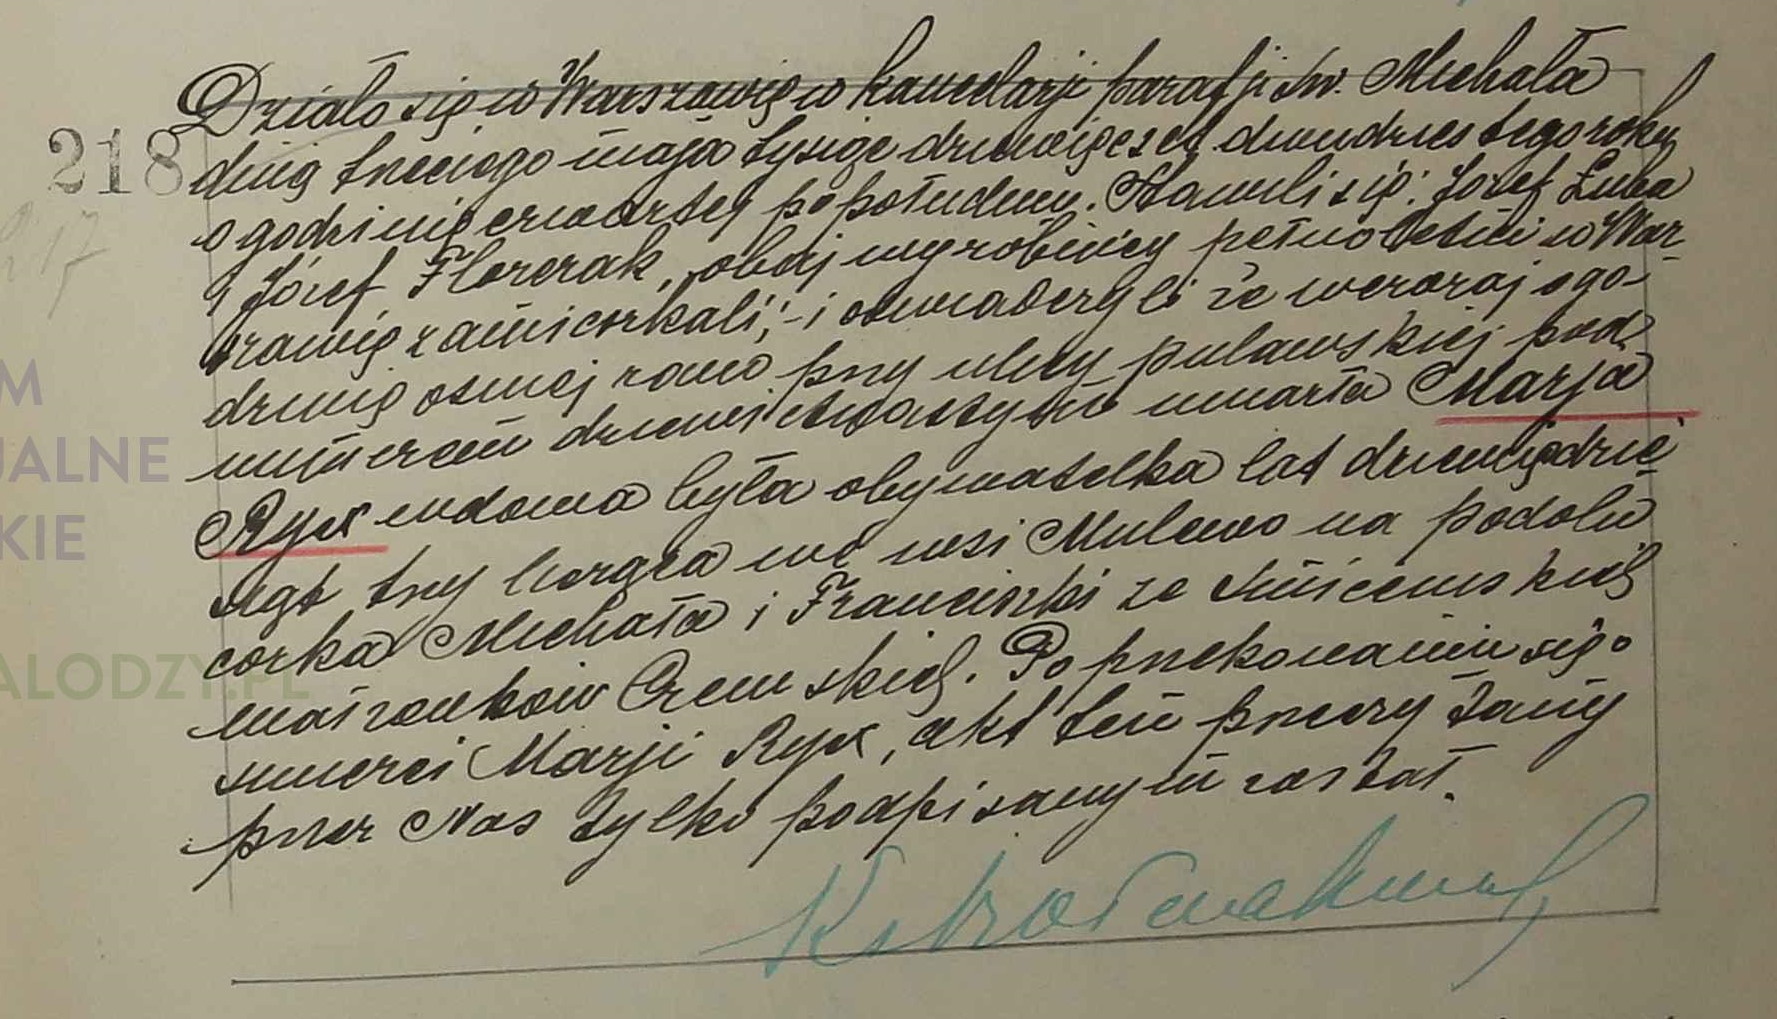 Działo się w Warszawie w kancelarji parafji św. Michała
218 dnia trzeciego maja tysiąc dziewięćset dwudziestego roku
217
o godzinie czwartej popołudniu. Stawili się: Józef Zuba
i Józef Florczak, obaj wyrobnicy pełnoletni w War-
szawie zamieszkali; - i oświadczyli że wczoraj o go-
dzinie ósmej rano przy ulicy puławskiej pod
numerem dziewiętnastym umarła Marja
Ryx wdowa była obywatelka lat dziewiędzie-
siąt trzy licząca we wsi na podolu
córka Michała i Franciszki ze
małżonków Czemskich. Po przekonaniu się o
śmierci Marji Ryx, akt ten przeczytany
przez Nas tylko podpisanym został.
M
UALNE
KIE
ALODZY.PL